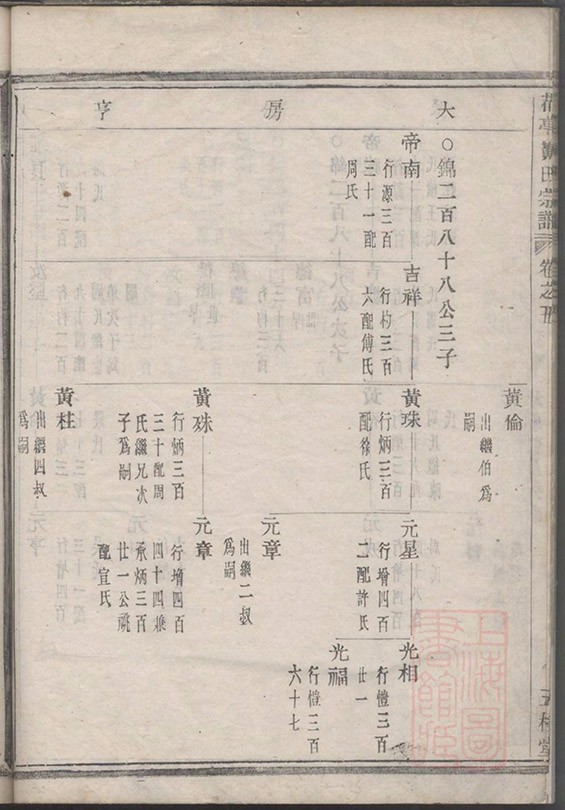 大
房
亨
○錦二百八十八公三子
帝南
行源三百
三十一配
周氏
吉祥
行杓三百
六配傅氏
黃倫
出繼伯爲
嗣
黃珠
行炳三百
配徐氏
黃殊
行炳三百
三十配周
氏繼兄次
子爲嗣
黃柱
出繼四叔
爲嗣
元星
行增四百
二配許氏
元章
出繼二叔
爲嗣
元章
行增四百
四十四兼
承炳三百
廿一公祧
配宣氏
光相
行愷三百
廿一
光福
行愷三百
六十七
田宗譜
卷之
堂
上海圖
書館